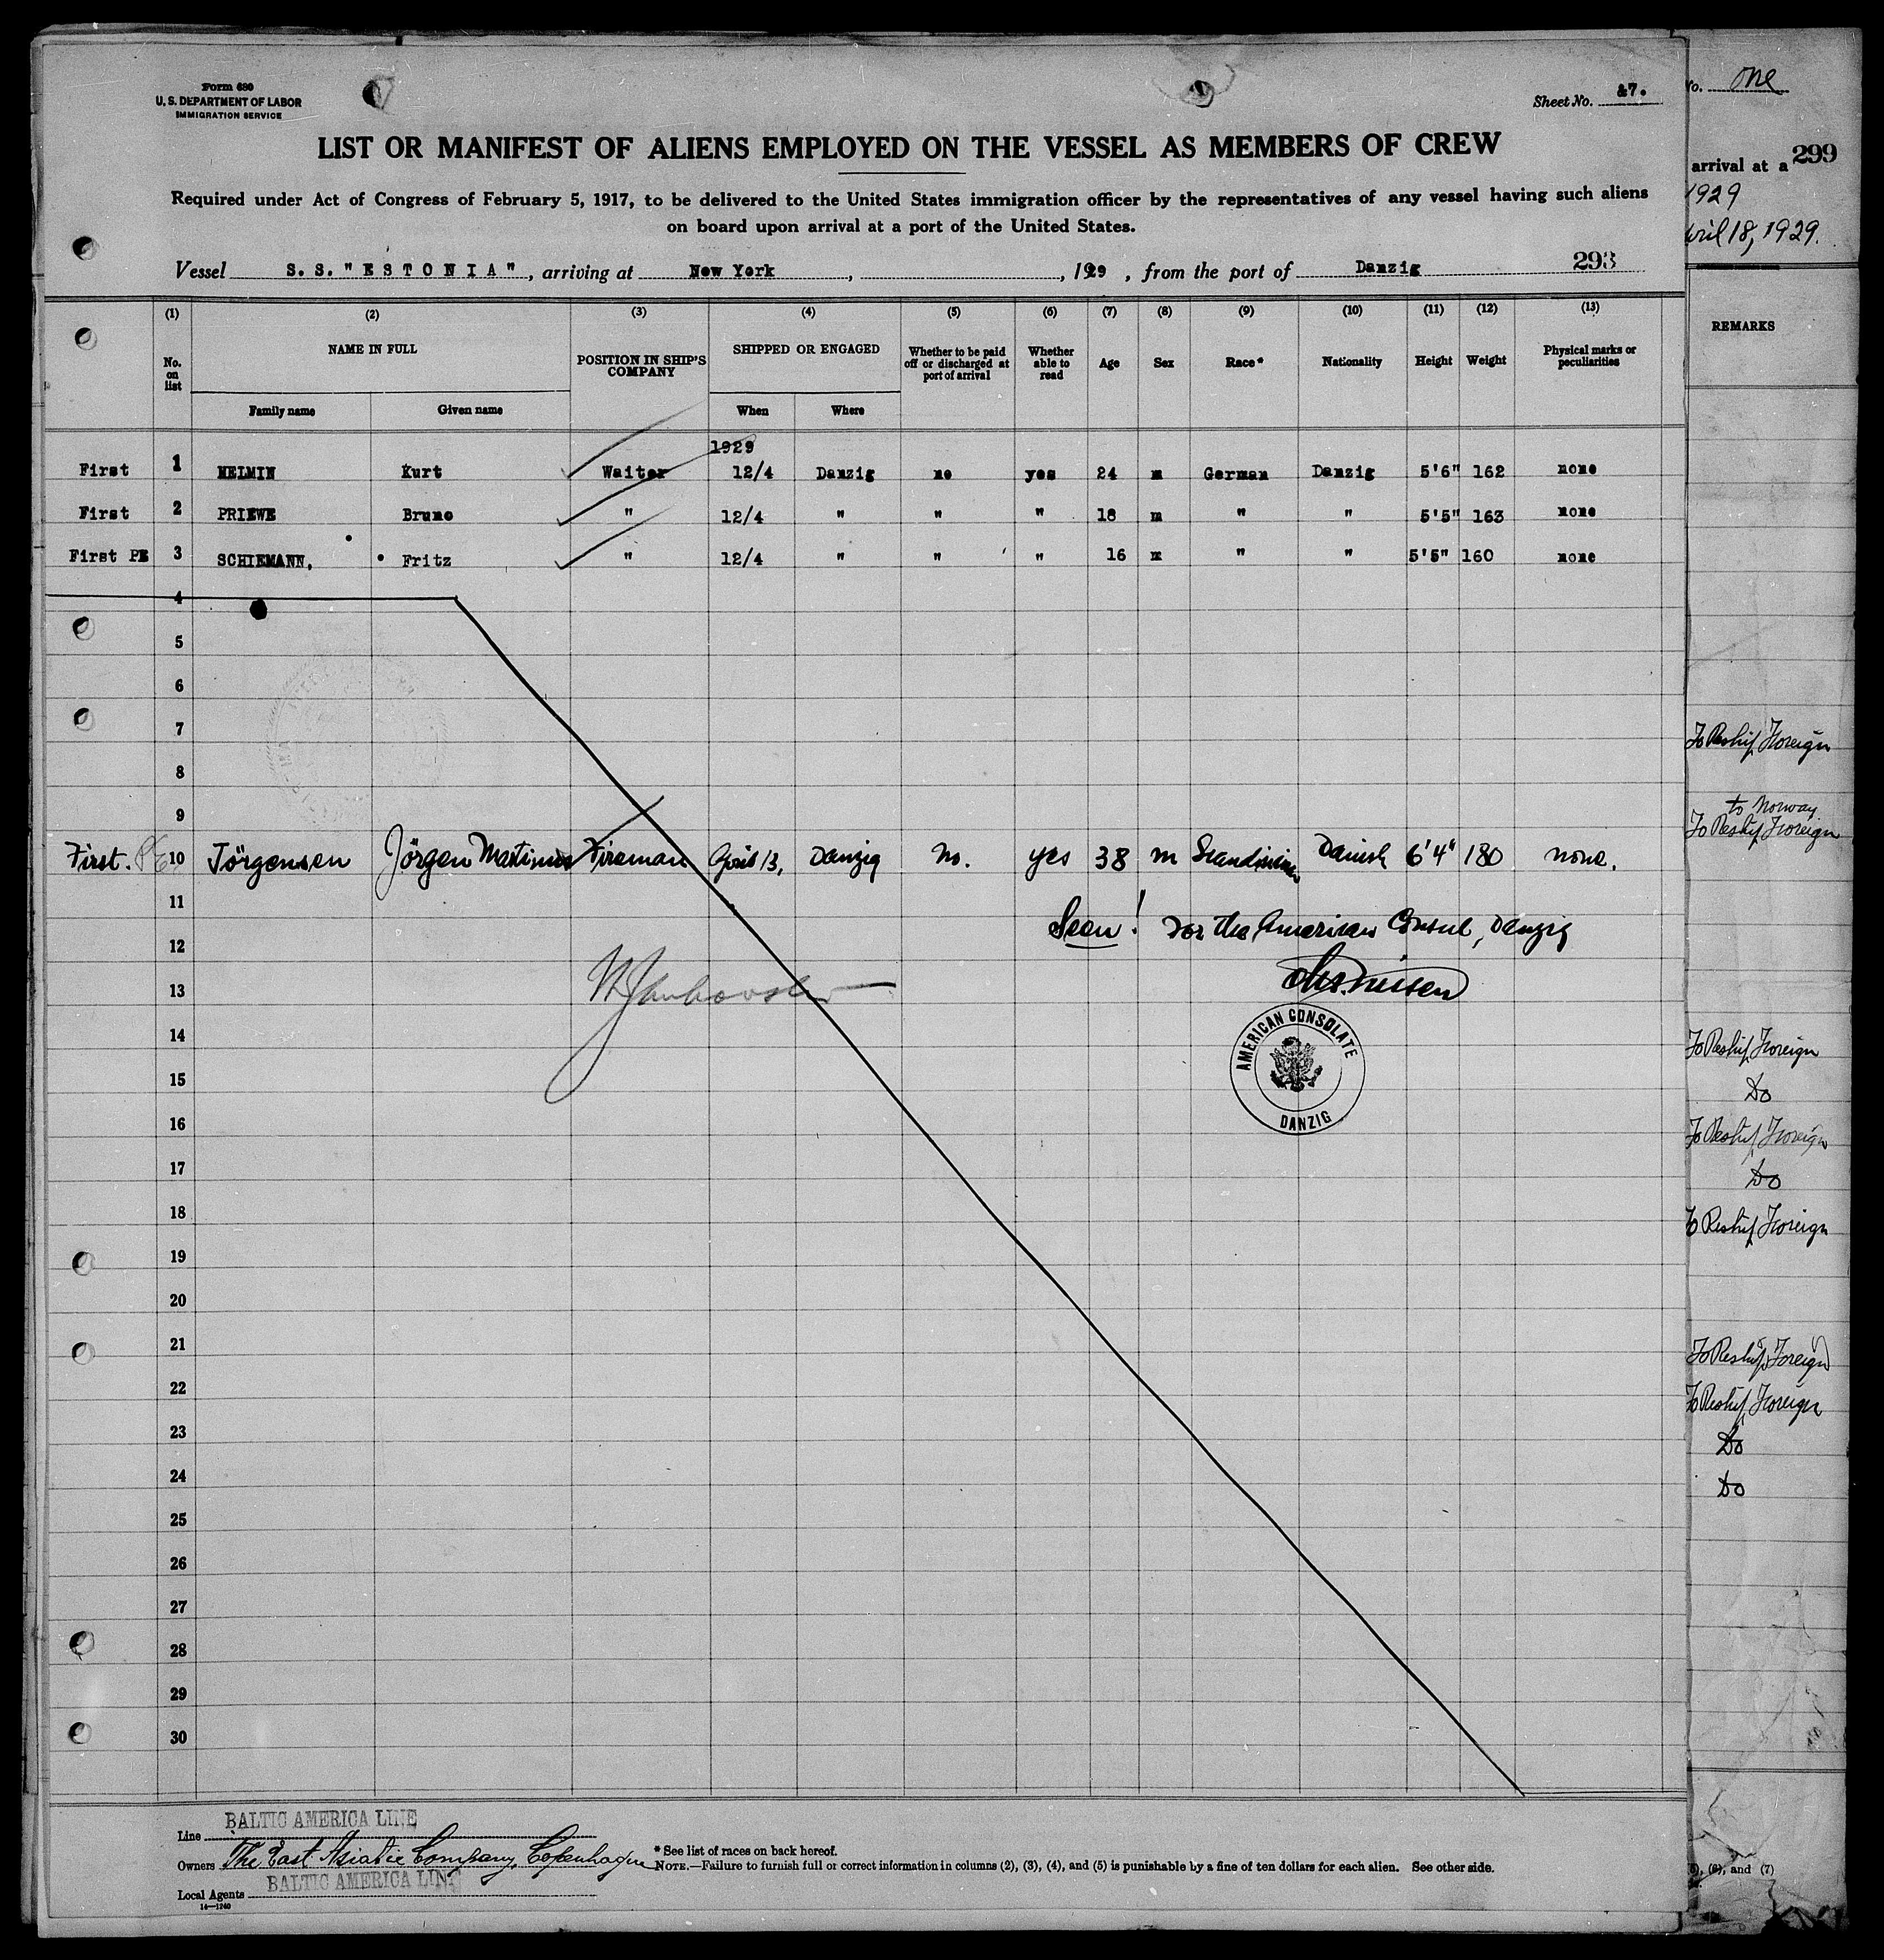 Form 680
U. S. DEPARTMENT OF LABOR
IMMIGRATION SERVICE
Sheet No. 47.
LIST OR MANIFEST OF ALIENS EMPLOYED ON THE VESSEL AS MEMBERS OF CREW
Required under Act of Congress of February 5, 1917, to be delivered to the United States immigration officer by the representatives of any vessel having such aliens
on board upon arrival at a port of the United States.
Vessel S. S. "ESTONIA", arriving at New York, , 1929, from the port of Danzig 293
(1) (2) (3) (4) (5) (6) (7) (8) (9) (10) (11) (12) (13)
No. on list NAME IN FULL Family name Given name POSITION IN SHIP'S COMPANY SHIPPED OR ENGAGED When Where Whether to be paid off or discharged at port of arrival Whether able to read Age Sex Race* Nationality Height Weight Physical marks or peculiarities
1929
First 1 MELMIN Kurt Waiter 12/4 Danzig no yes 24 m German Danzig 5'6" 162 none
First 2 PRIEWE Bruno " 12/4 " " " 18 m " " 5'5" 163 none
First PE 3 SCHIEMANN, Fritz " 12/4 " " " 16 m " " 5'5" 160 none
4
5
6
7
8
9
First. PE 10 Jörgensen Jörgen Martinus Fireman April 13, Danzig No. yes 38 m Scandinavian Danish 6'4" 180 none.
11
Seen! For the American Consul, Danzig
12
13
14
15
AMERICAN CONSULATE
DANZIG
16
17
18
19
20
21
22
23
24
25
26
27
28
29
30
Line BALTIC AMERICA LINE
Owners The East Asiatic Company, Copenhagen
Local Agents BALTIC AMERICA LINE
14—1240
* See list of races on back hereof.
NOTE.—Failure to furnish full or correct information in columns (2), (3), (4), and (5) is punishable by a fine of ten dollars for each alien. See other side.
No. One
arrival at a 299
1929
April 18, 1929.
REMARKS
To Reship Foreign
to Norway
To Reship Foreign
To Reship Foreign
Do
To Reship Foreign
Do
To Reship Foreign
To Reship Foreign
To Reship Foreign
Do
Do
, (6), and (7)